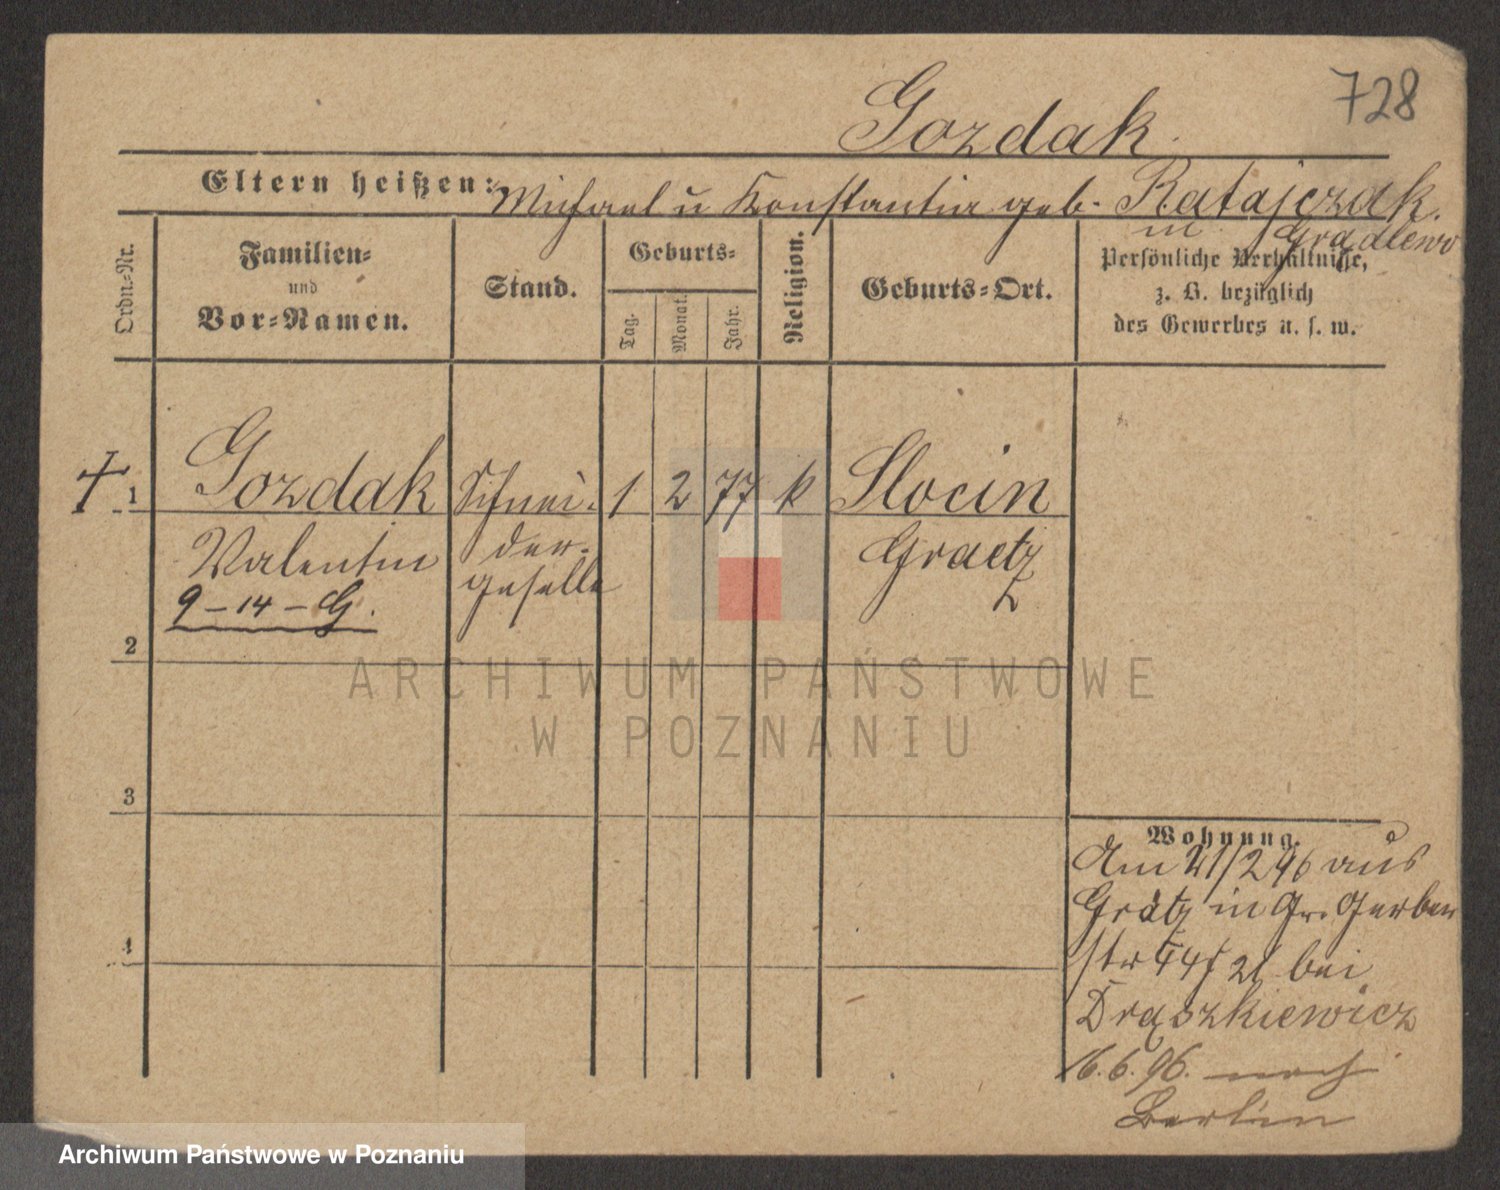 728
Gozdak.
Eltern heißen: Michael u Konstantin geb. Ratajczak.
in Grądlewo
Ordn.-Nr.
Familien-
und
Vor-Namen.
Stand.
Geburts-
Tag.
Monat.
Jahr.
Religion.
Geburts-Ort.
Persönliche Verhältnisse,
z. B. bezüglich
des Gewerbes u. s. w.
1 Gozdak Schnei- 1 2 77 k Slocin
Valentin der- Graetz
9-14-G. geselle
2
3
4
Wohnung.
Am 21/2 96 aus
Grätz in Gr. Gerber
str bei
Drązkiewicz
6.6.96. nach
Berlin
ARCHIWUM PAŃSTWOWE
W POZNANIU
Archiwum Państwowe w Poznaniu